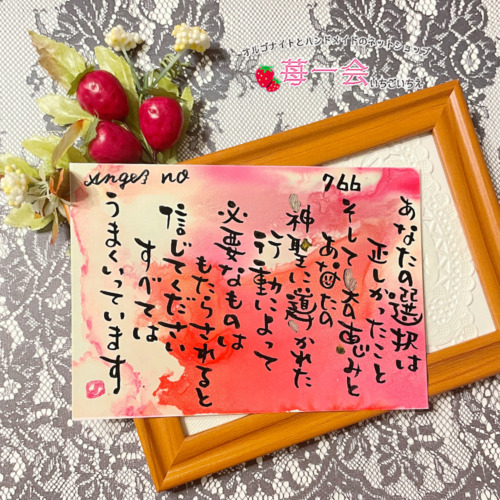 オルゴナイトとハンドメイドのネットショップ
苺一会
いちごいちえ
Angel no
766
あなたの選択は
正しかったこと
そして天の恵みと
あなたの
神聖に導かれた
行動によって
必要なものは
もたらされると
信じてください
すべては
うまくいっています